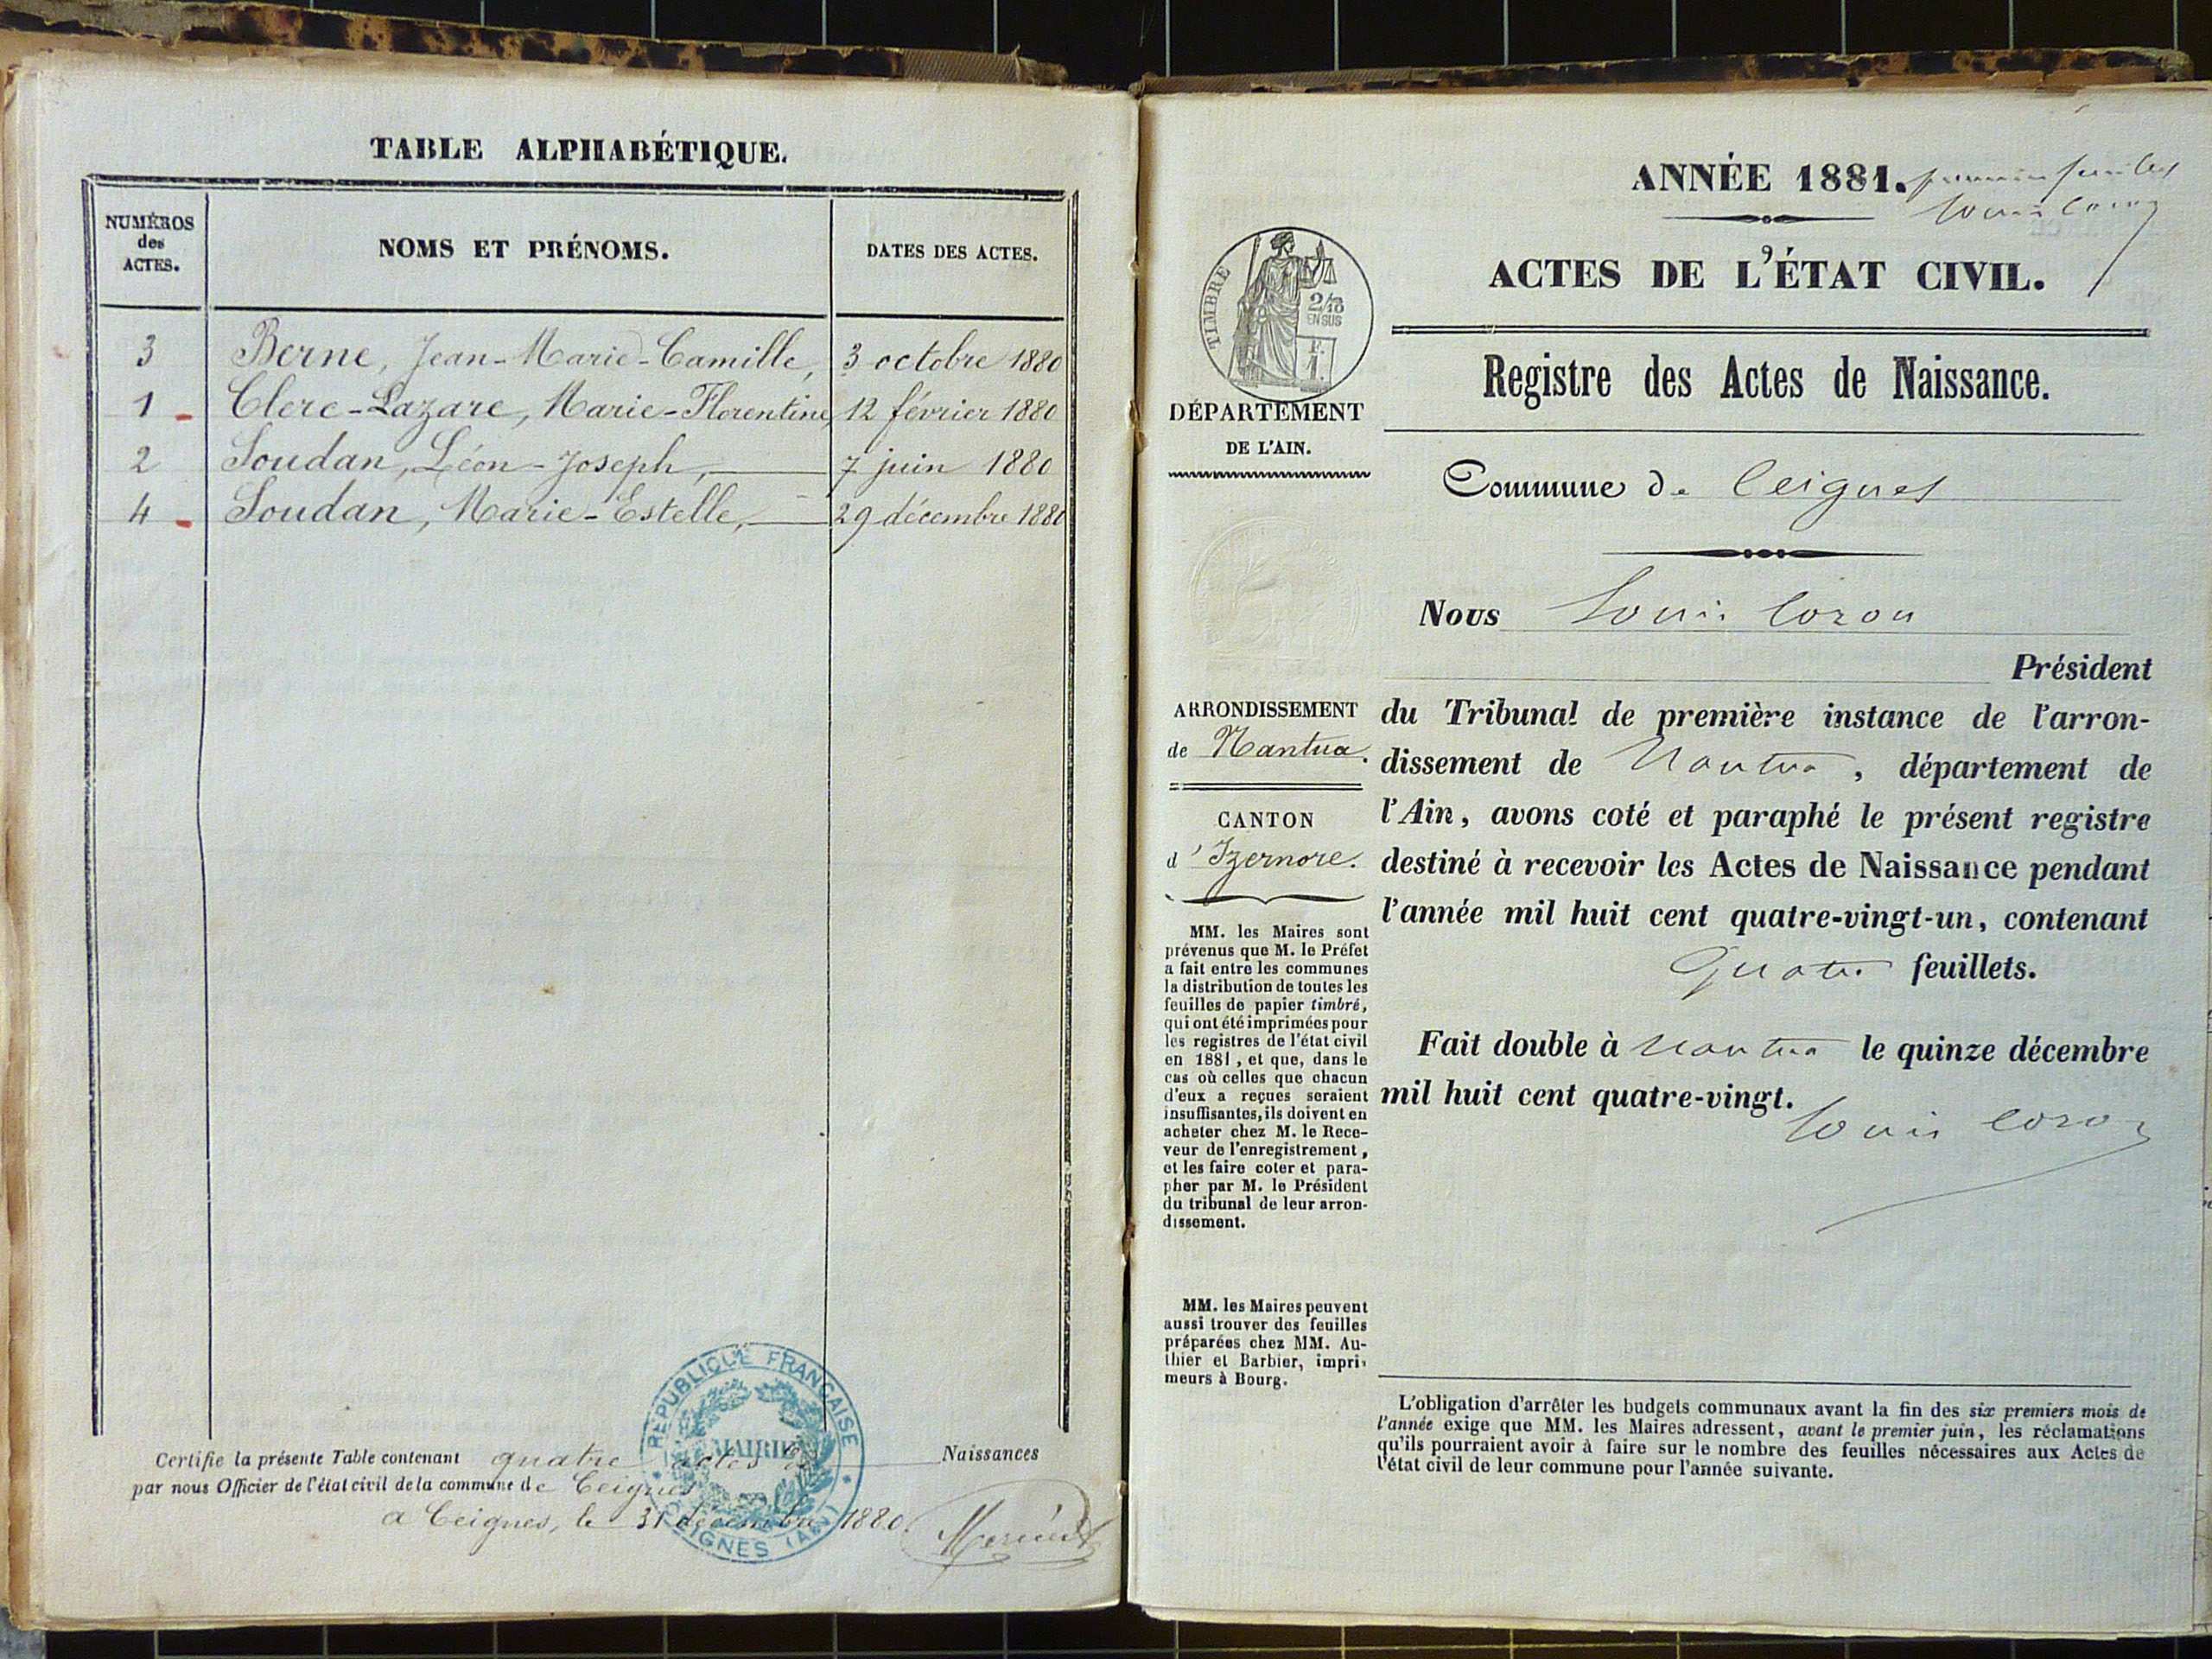 TABLE ALPHABÉTIQUE.
NUMÉROS
des
ACTES.
NOMS ET PRÉNOMS.
DATES DES ACTES.
3 Berne, Jean-Marie-Camille, 3 octobre 1880
1 Clerc-Lazare, Marie-Florentine, 12 février 1880
2 Soudan, Léon-Joseph, 7 juin 1880
4 Soudan, Marie-Estelle, 29 décembre 1880
Certifie la présente Table contenant quatre actes de Naissances
par nous Officier de l'état civil de la commune de Ceignes
a Ceignes, le 31 décembre 1880
RÉPUBLIQUE FRANÇAISE
MAIRIE
CEIGNES (AIN)
ANNÉE 1881.
Louis Coron
ACTES DE L'ÉTAT CIVIL.
TIMBRE
2/10
EN SUS
F.
1.
DÉPARTEMENT
DE L'AIN.
Registre des Actes de Naissance.
Commune de Ceignes
Nous Louis Coron
Président
du Tribunal de première instance de l'arron-
dissement de Nantua, département de
l'Ain, avons coté et paraphé le présent registre
destiné à recevoir les Actes de Naissance pendant
l'année mil huit cent quatre-vingt-un, contenant
Quatre feuillets.
Fait double à Nantua le quinze décembre
mil huit cent quatre-vingt.
Louis Coron
ARRONDISSEMENT
de Nantua.
CANTON
d'Izernore.
MM. les Maires sont
prévenus que M. le Préfet
a fait entre les communes
la distribution de toutes les
feuilles de papier timbré,
qui ont été imprimées pour
les registres de l'état civil
en 1881, et que, dans le
cas où celles que chacun
d'eux a reçues seraient
insuffisantes, ils doivent en
acheter chez M. le Rece-
veur de l'enregistrement,
et les faire coter et para-
pher par M. le Président
du tribunal de leur arron-
dissement.
MM. les Maires peuvent
aussi trouver des feuilles
préparées chez MM. Au-
thier et Barbier, impri-
meurs à Bourg.
L'obligation d'arrêter les budgets communaux avant la fin des six premiers mois de
l'année exige que MM. les Maires adressent, avant le premier juin, les réclamations
qu'ils pourraient avoir à faire sur le nombre des feuilles nécessaires aux Actes de
l'état civil de leur commune pour l'année suivante.